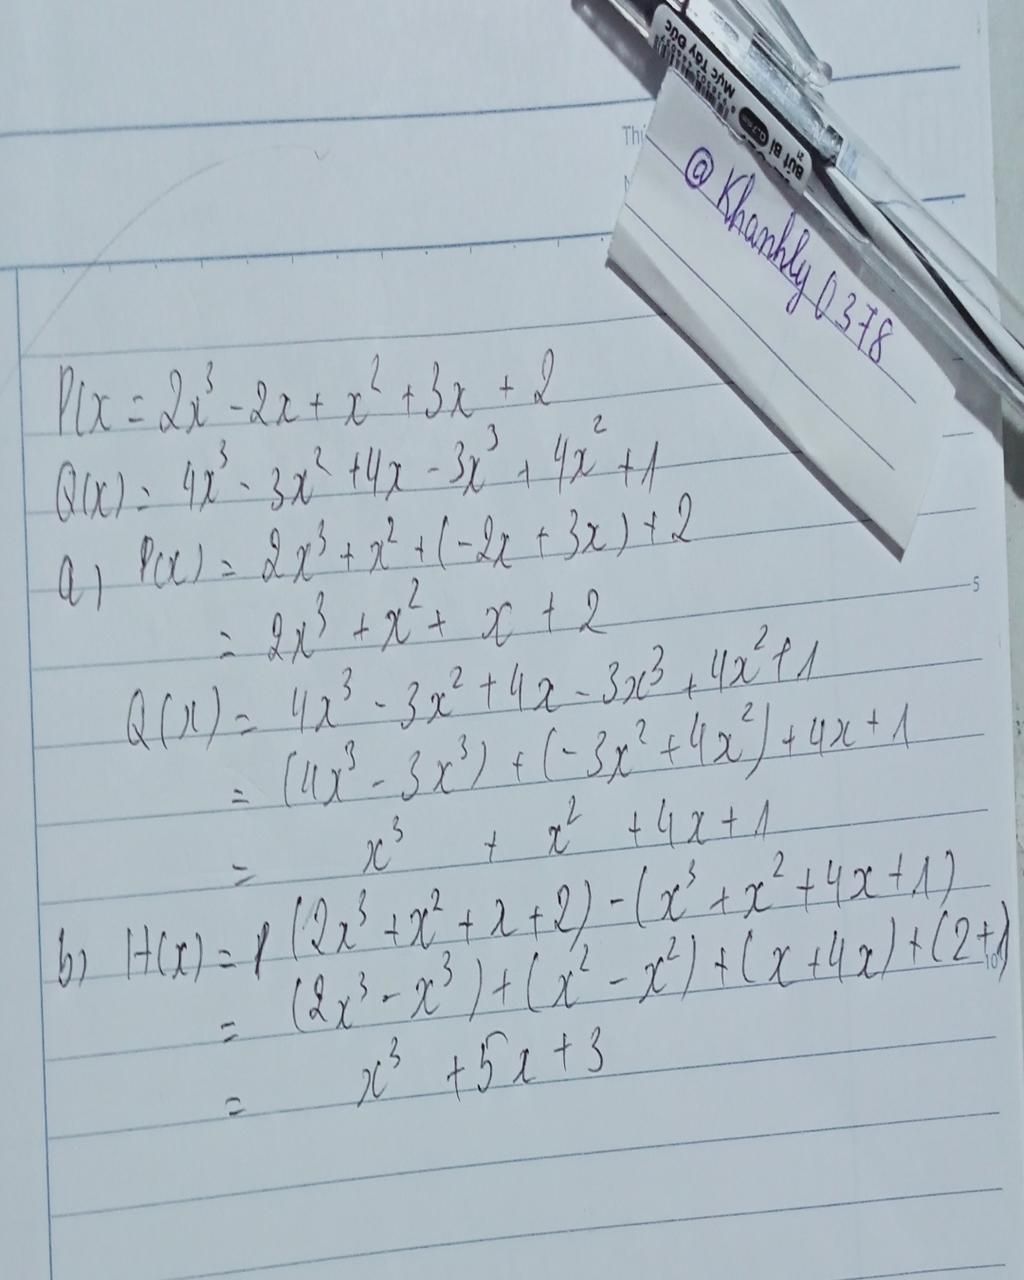 Mực Tây Đức
BÚT BI
@ Khanhly 0378
P(x = 2x³ - 2x + x² + 3x + 2
Q(x) = 4x³ - 3x² + 4x - 3x³ + 4x² + 1
a) P(x) = 2x³ + x² + (-2x + 3x) + 2
= 2x³ + x² + x + 2
5
Q(x) = 4x³ - 3x² + 4x - 3x³ + 4x² + 1
= (4x³ - 3x³) + (-3x² + 4x²) + 4x + 1
= x³ + x² + 4x + 1
b) H(x) = (2x³ + x² + x + 2) - (x³ + x² + 4x + 1)
= (2x³ - x³) + (x² - x²) + (x + 4x) + (2 + 1)
10
= x³ + 5x + 3